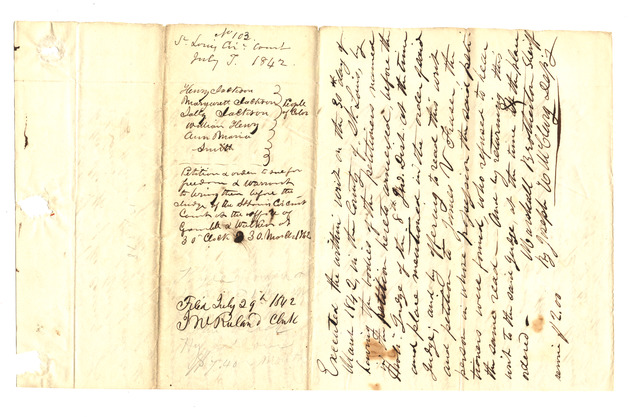 No 103.
St Louis Cir. Court
July T. 1842.
Henry Jackson
Margarett Jackson
Sally Jackson
William Henry
Ann Maria
Smith
People
of Color
Petition & order to sue for
freedom & Warrant
to bring them before the
Judge of the St Louis Circuit
Court at the office of
Gamble &
3 oClock 30 March 1842
Filed July 29th 1842
Jno Ruland Clerk
Executed the within writ on the 30th day of
March 1842, in the County of St Louis, by
having the bodies of the persons named
in petition before the
Judge of the 8th Jud. Dist. at the time
and place mentioned in the
Judge, and by offering to read this writ
and petition to
person in whose possession the said peti
tioners were found, who refused to hear
the same read and by returning this
writ to the said Judge at the time & the place
ordered —
Marshall Brotherton Sheriff
By Joseph W McClurg Depy
$2.00